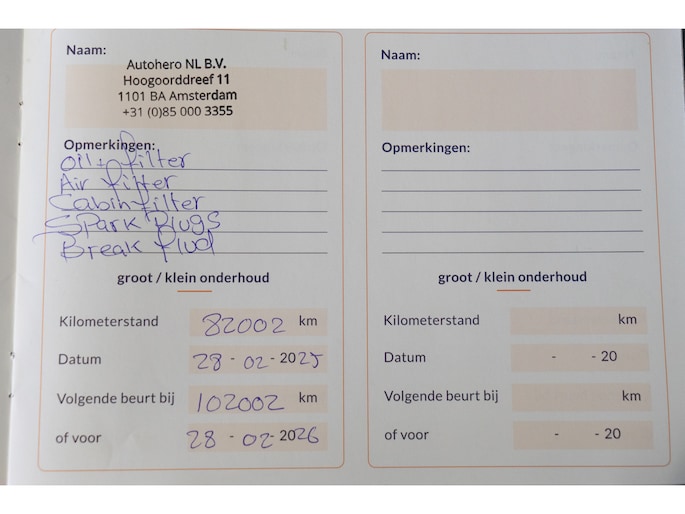 Naam:
Autohero NL B.V.
Hoogoorddreef 11
1101 BA Amsterdam
+31 (0)85 000 3355
Opmerkingen:
Oil+ filter
Air filter
Cabin filter
Spark Plugs
Break flud
groot / klein onderhoud
Kilometerstand 82002 km
Datum 28 - 02 - 2025
Volgende beurt bij 102002 km
of voor 28 - 02 - 2026
Naam:
Opmerkingen:
groot / klein onderhoud
Kilometerstand km
Datum - - 20
Volgende beurt bij km
of voor - - 20